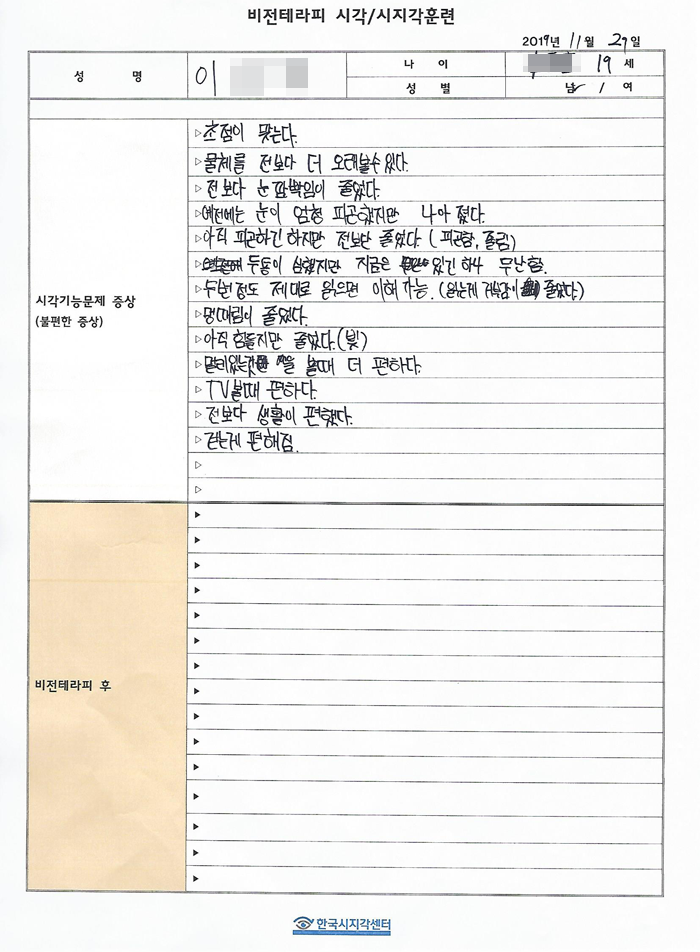 비전테라피 시각/시지각훈련
2019년 11월 29일
성 명 이 나 이 19 세
성 별 남 / 여
시각기능문제 증상
(불편한 증상)
▷초점이 맞는다.
▷물체를 전보다 더 오래볼수 있다.
▷전보다 눈 깜박임이 줄었다.
▷예전에는 눈이 엄청 피곤했지만 나아 졌다.
▷아직 피곤하긴 하지만 전보단 줄었다. (피곤함, 졸림)
▷두통이 심했지만 지금은 있긴 하나 무난함.
▷두번정도 제대로 읽으면 이해 가능. (줄었다.)
▷멍때림이 줄었다.
▷아직 힘들지만 줄었다. (빛)
▷멀리있는것 을 볼때 더 편하다.
▷TV볼때 편하다.
▷전보다 생활이 편했다.
▷걷는게 편해짐.
▷
▷
비전테라피 후
한국시지각센터